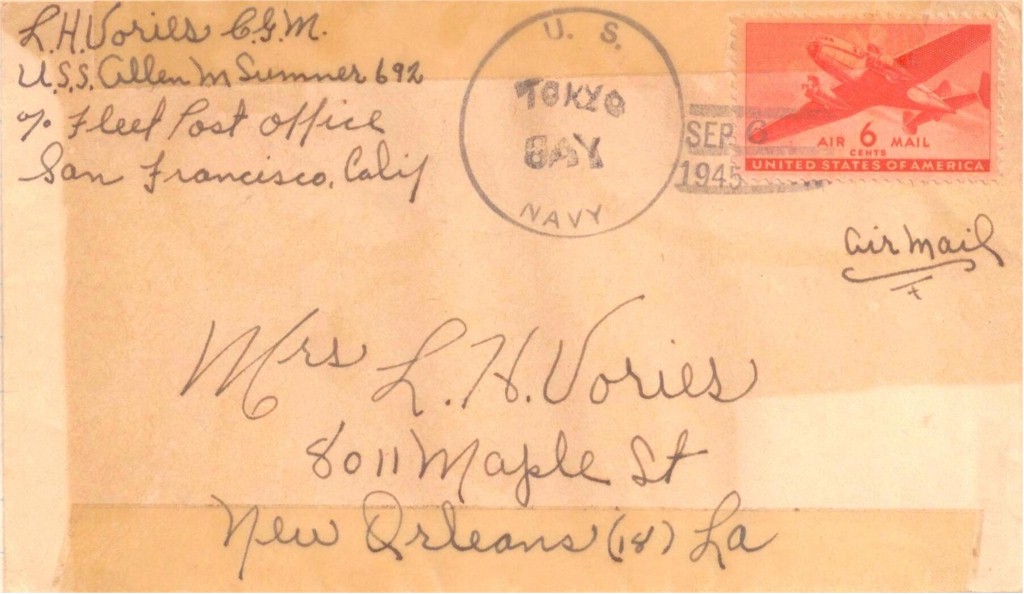 L.H. Vories C.G.M.
U.S.S. Allen M Sumner 692
c/o Fleet Post Office
San Francisco, Calif
U. S.
TOKYO
BAY
NAVY
SEP 6
1945
AIR 6 MAIL
CENTS
UNITED STATES OF AMERICA
Air Mail
Mrs L. H. Vories
8011 Maple St
New Orleans (18) La